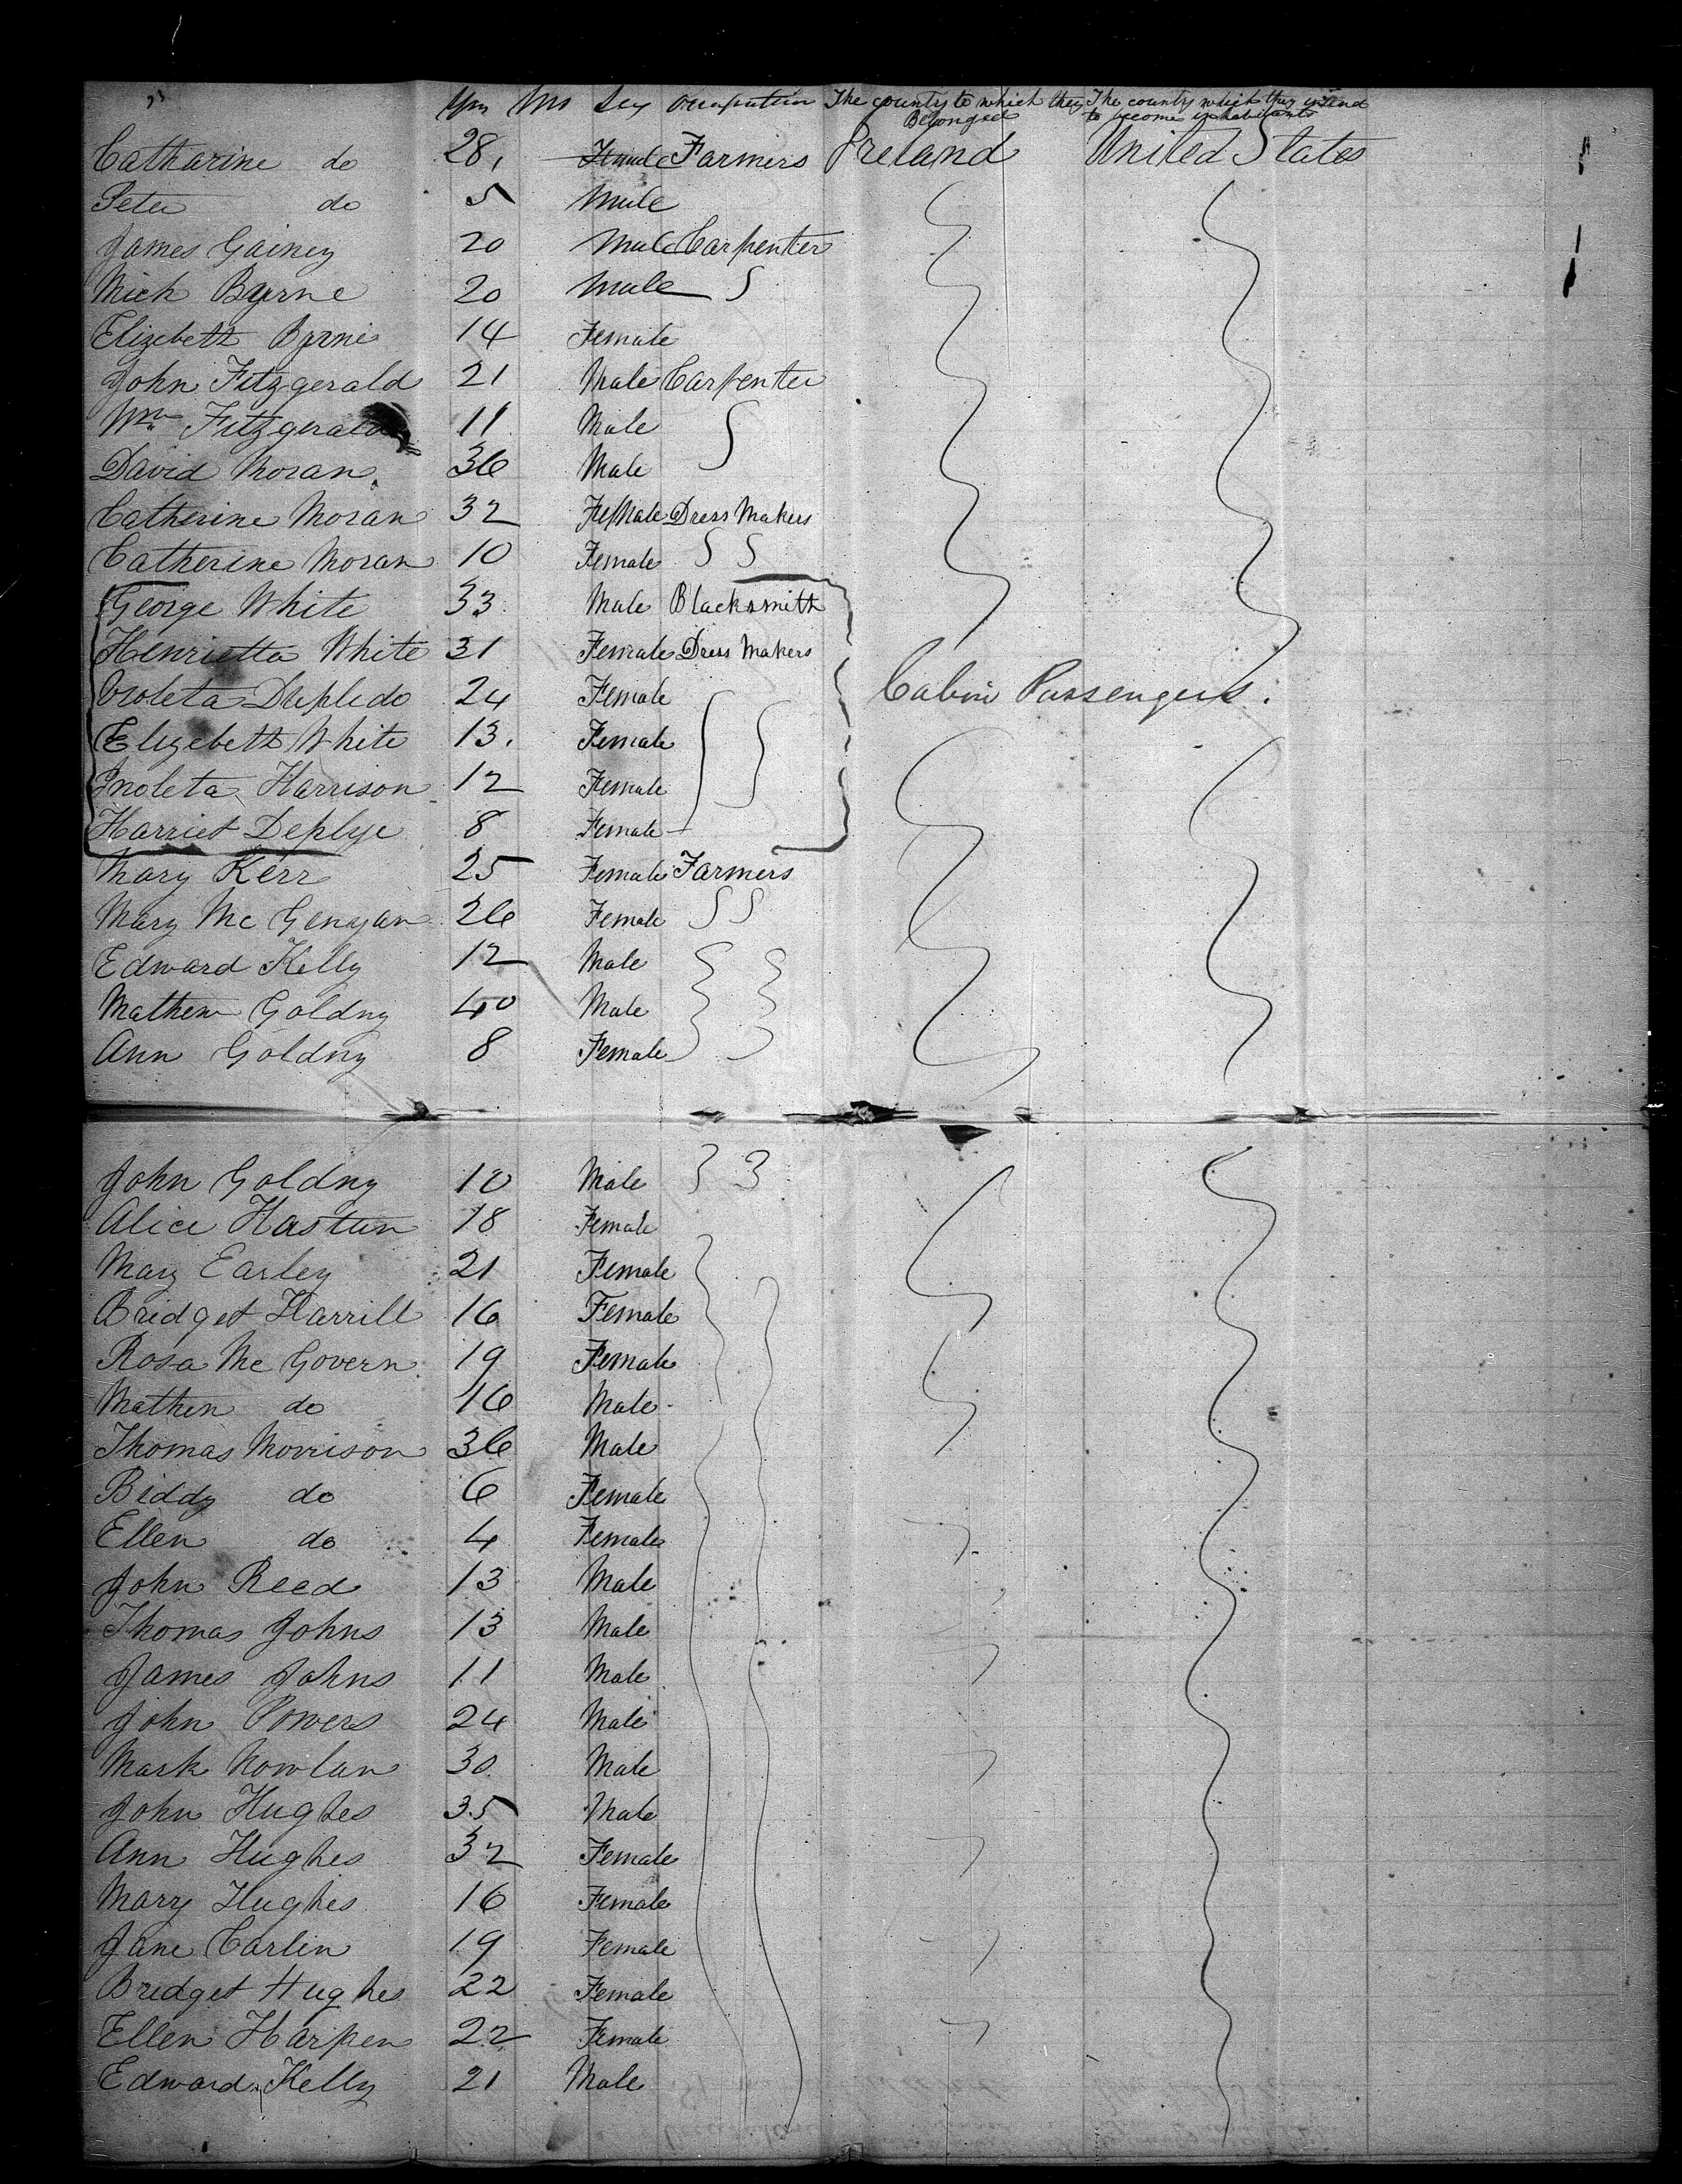 Yrs Mo Sex Occupation The county to which they Belonged The county which they intend to become inhabitants
Catharine do 28 Female Farmers Ireland United States
Peter do 5 Male
James Gainey 20 Male Carpenter
Mich Byrne 20 Male
Elizebeth Byrne 14 Female
John Fitzgerald 21 Male Carpenter
Wm Fitzgerald 11 Male
David Moran 36 Male
Catherine Moran 32 Female Dress Makers
Catherine Moran 10 Female
George White 33 Male Blacksmith
Henrietta White 31 Female Dress Makers
24 Female Cabin Passengers.
Elizebeth White 13 Female
Harrison 12 Female
Harriet Deplye 8 Female
Mary Kerr 25 Female Farmers
Mary Mc Genyan 26 Female
Edward Kelly 12 Male
Mathew Goldny 40 Male
Ann Goldny 8 Female
John Goldny 10 Male
Alice Hastun 18 Female
Mary Earley 21 Female
Bridget Harrill 16 Female
Rosa Mc Govern 19 Female
Mathew do 16 Male
Thomas Morrison 36 Male
Biddy do 6 Female
Ellen do 4 Female
John Reed 13 Male
Thomas Johns 13 Male
James Johns 11 Male
John Powers 24 Male
Mark Nowlan 30 Male
John Hughes 35 Male
Ann Hughes 32 Female
Mary Hughes 16 Female
Jane Carlin 19 Female
Bridget Hughes 22 Female
Ellen Harpen 22 Female
Edward Kelly 21 Male